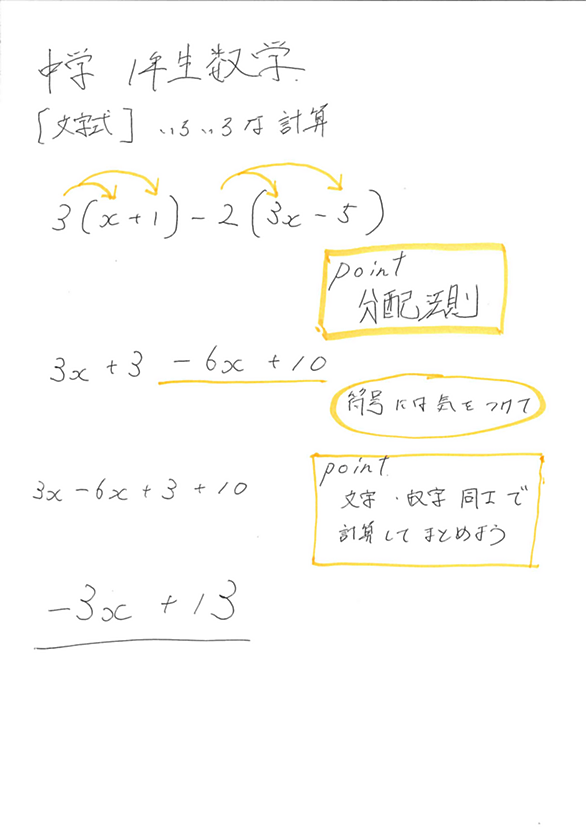 中学 1年生数学
[文字式] いろいろな計算
3(x+1)-2(3x-5)
point
分配法則
3x+3 -6x+10
符号には気をつけて
3x-6x+3+10
point
文字・数字同士で
計算してまとめよう
-3x+13